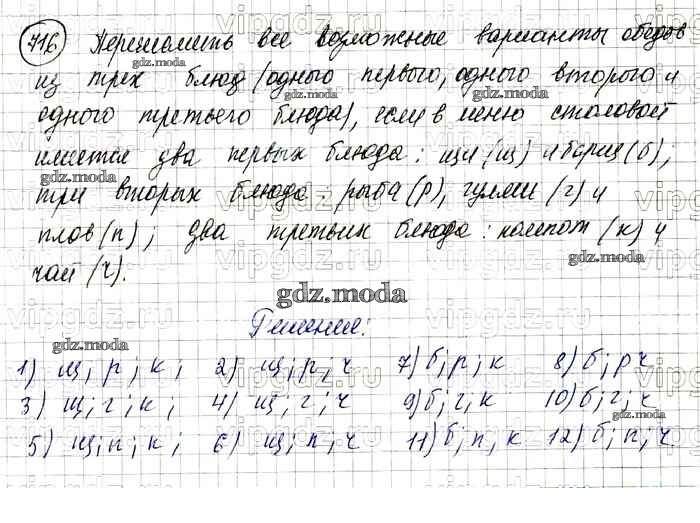 716 Перечислить все возможные варианты обедов
из трех блюд (одного первого, одного второго и
одного третьего блюда), если в меню столовой
имеется два первых блюда: щи (щ) и борщ (б);
три вторых блюда: рыба (р), гуляш (г) и
плов (п); два третьих блюда: компот (к) и
чай (ч).
Решение:
1) щ; р; к; 2) щ; р; ч 7) б; р; к 8) б; р ч
3) щ; г; к; 4) щ; г; ч 9) б; г; к 10) б; г; ч
5) щ; п; к; 6) щ; п; ч 11) б; п; к 12) б; п; ч
gdz.moda
vipgdz.ru